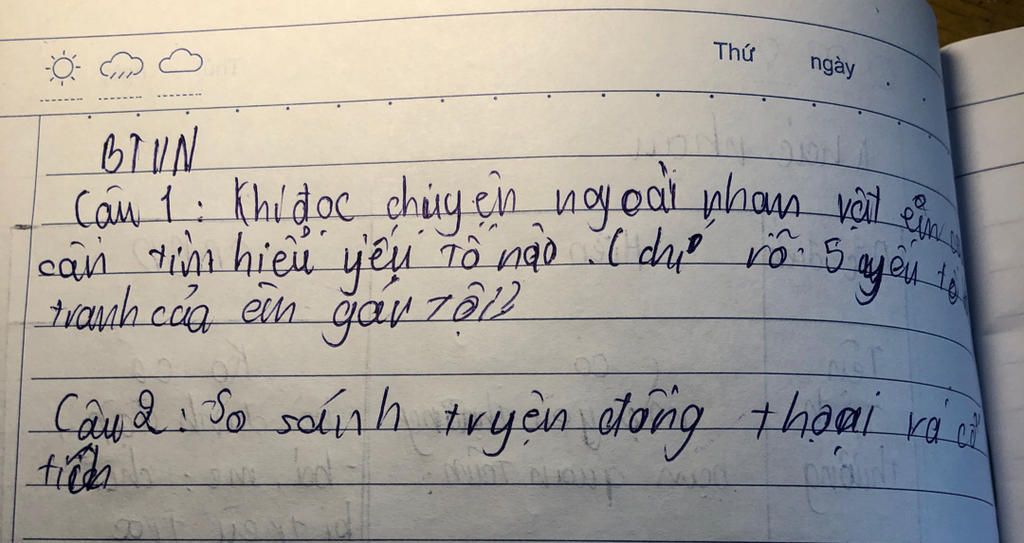 Thứ ngày
BTVN
Câu 1: Khi đọc chuyện ngoài nhan vật em
cần tìm hiểu yếu tố nào. (chỉ rõ 5 yếu tố
tranh của em gái tôi)
Câu 2: So sánh truyện đồng thoại và cổ
tích